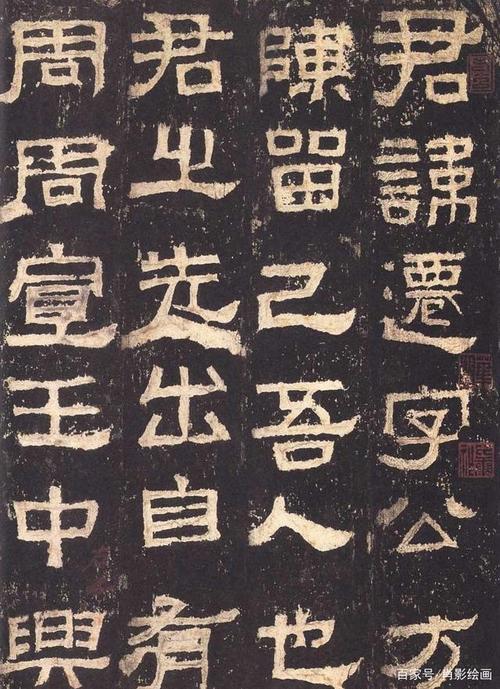 君諱遷字公方
陳留己吾人也
君之先出自有
周周宣王中興
百家号/肖影绘画